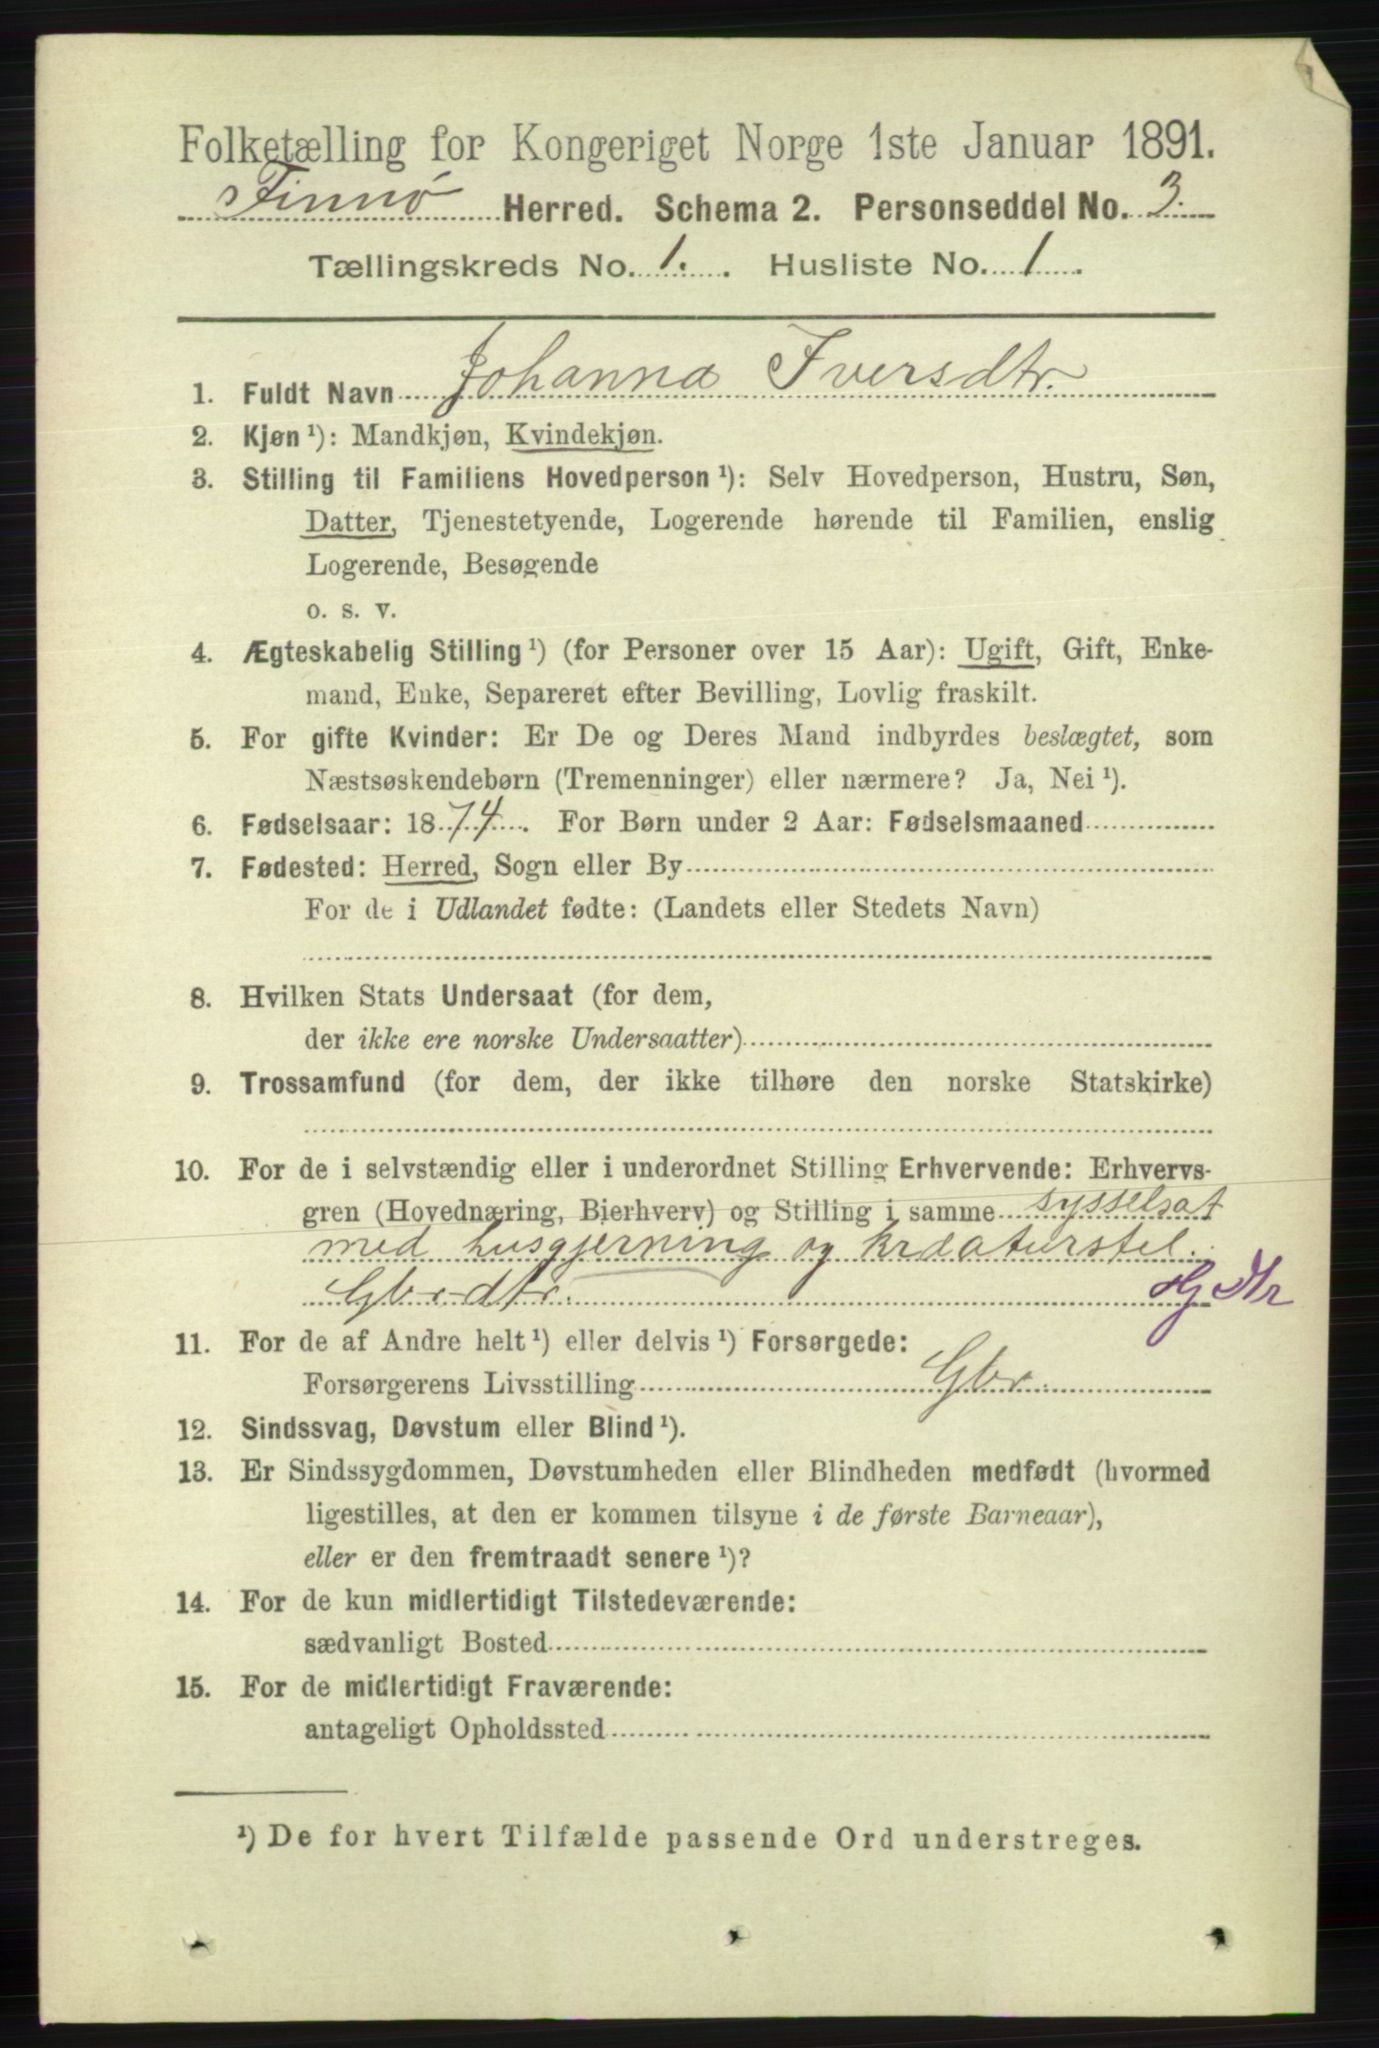 Folketælling for Kongeriget Norge 1ste Januar 1891.
Finnø Herred. Schema 2. Personseddel No. 3.
Tællingskreds No. 1. Husliste No. 1
1. Fuldt Navn Johanna Iversdtr.
2. Kjøn ¹): Mandkjøn, Kvindekjøn.
3. Stilling til Familiens Hovedperson ¹): Selv Hovedperson, Hustru, Søn,
Datter, Tjenestetyende, Logerende hørende til Familien, enslig
Logerende, Besøgende
o. s. v.
4. Ægteskabelig Stilling ¹) (for Personer over 15 Aar): Ugift, Gift, Enke-
mand, Enke, Separeret efter Bevilling, Lovlig fraskilt.
5. For gifte Kvinder: Er De og Deres Mand indbyrdes beslægtet, som
Næstsøskendebørn (Tremenninger) eller nærmere? Ja, Nei ¹).
6. Fødselsaar: 1874. For Børn under 2 Aar: Fødselsmaaned
7. Fødested: Herred, Sogn eller By
For de i Udlandet fødte: (Landets eller Stedets Navn)
8. Hvilken Stats Undersaat (for dem,
der ikke ere norske Undersaatter)
9. Trossamfund (for dem, der ikke tilhøre den norske Statskirke)
10. For de i selvstændig eller i underordnet Stilling Erhvervende: Erhvervs-
gren (Hovednæring, Bierhverv) og Stilling i samme sysselsat
med husgjerning og kreaturstel.
Gbrdtr. Hg Dtr
11. For de af Andre helt ¹) eller delvis ¹) Forsørgede:
Forsørgerens Livsstilling Gbr.
12. Sindssvag, Døvstum eller Blind ¹).
13. Er Sindssygdommen, Døvstumheden eller Blindheden medfødt (hvormed
ligestilles, at den er kommen tilsyne i de første Barneaar),
eller er den fremtraadt senere ¹)?
14. For de kun midlertidigt Tilstedeværende:
sædvanligt Bosted
15. For de midlertidigt Fraværende:
antageligt Opholdssted
¹) De for hvert Tilfælde passende Ord understreges.